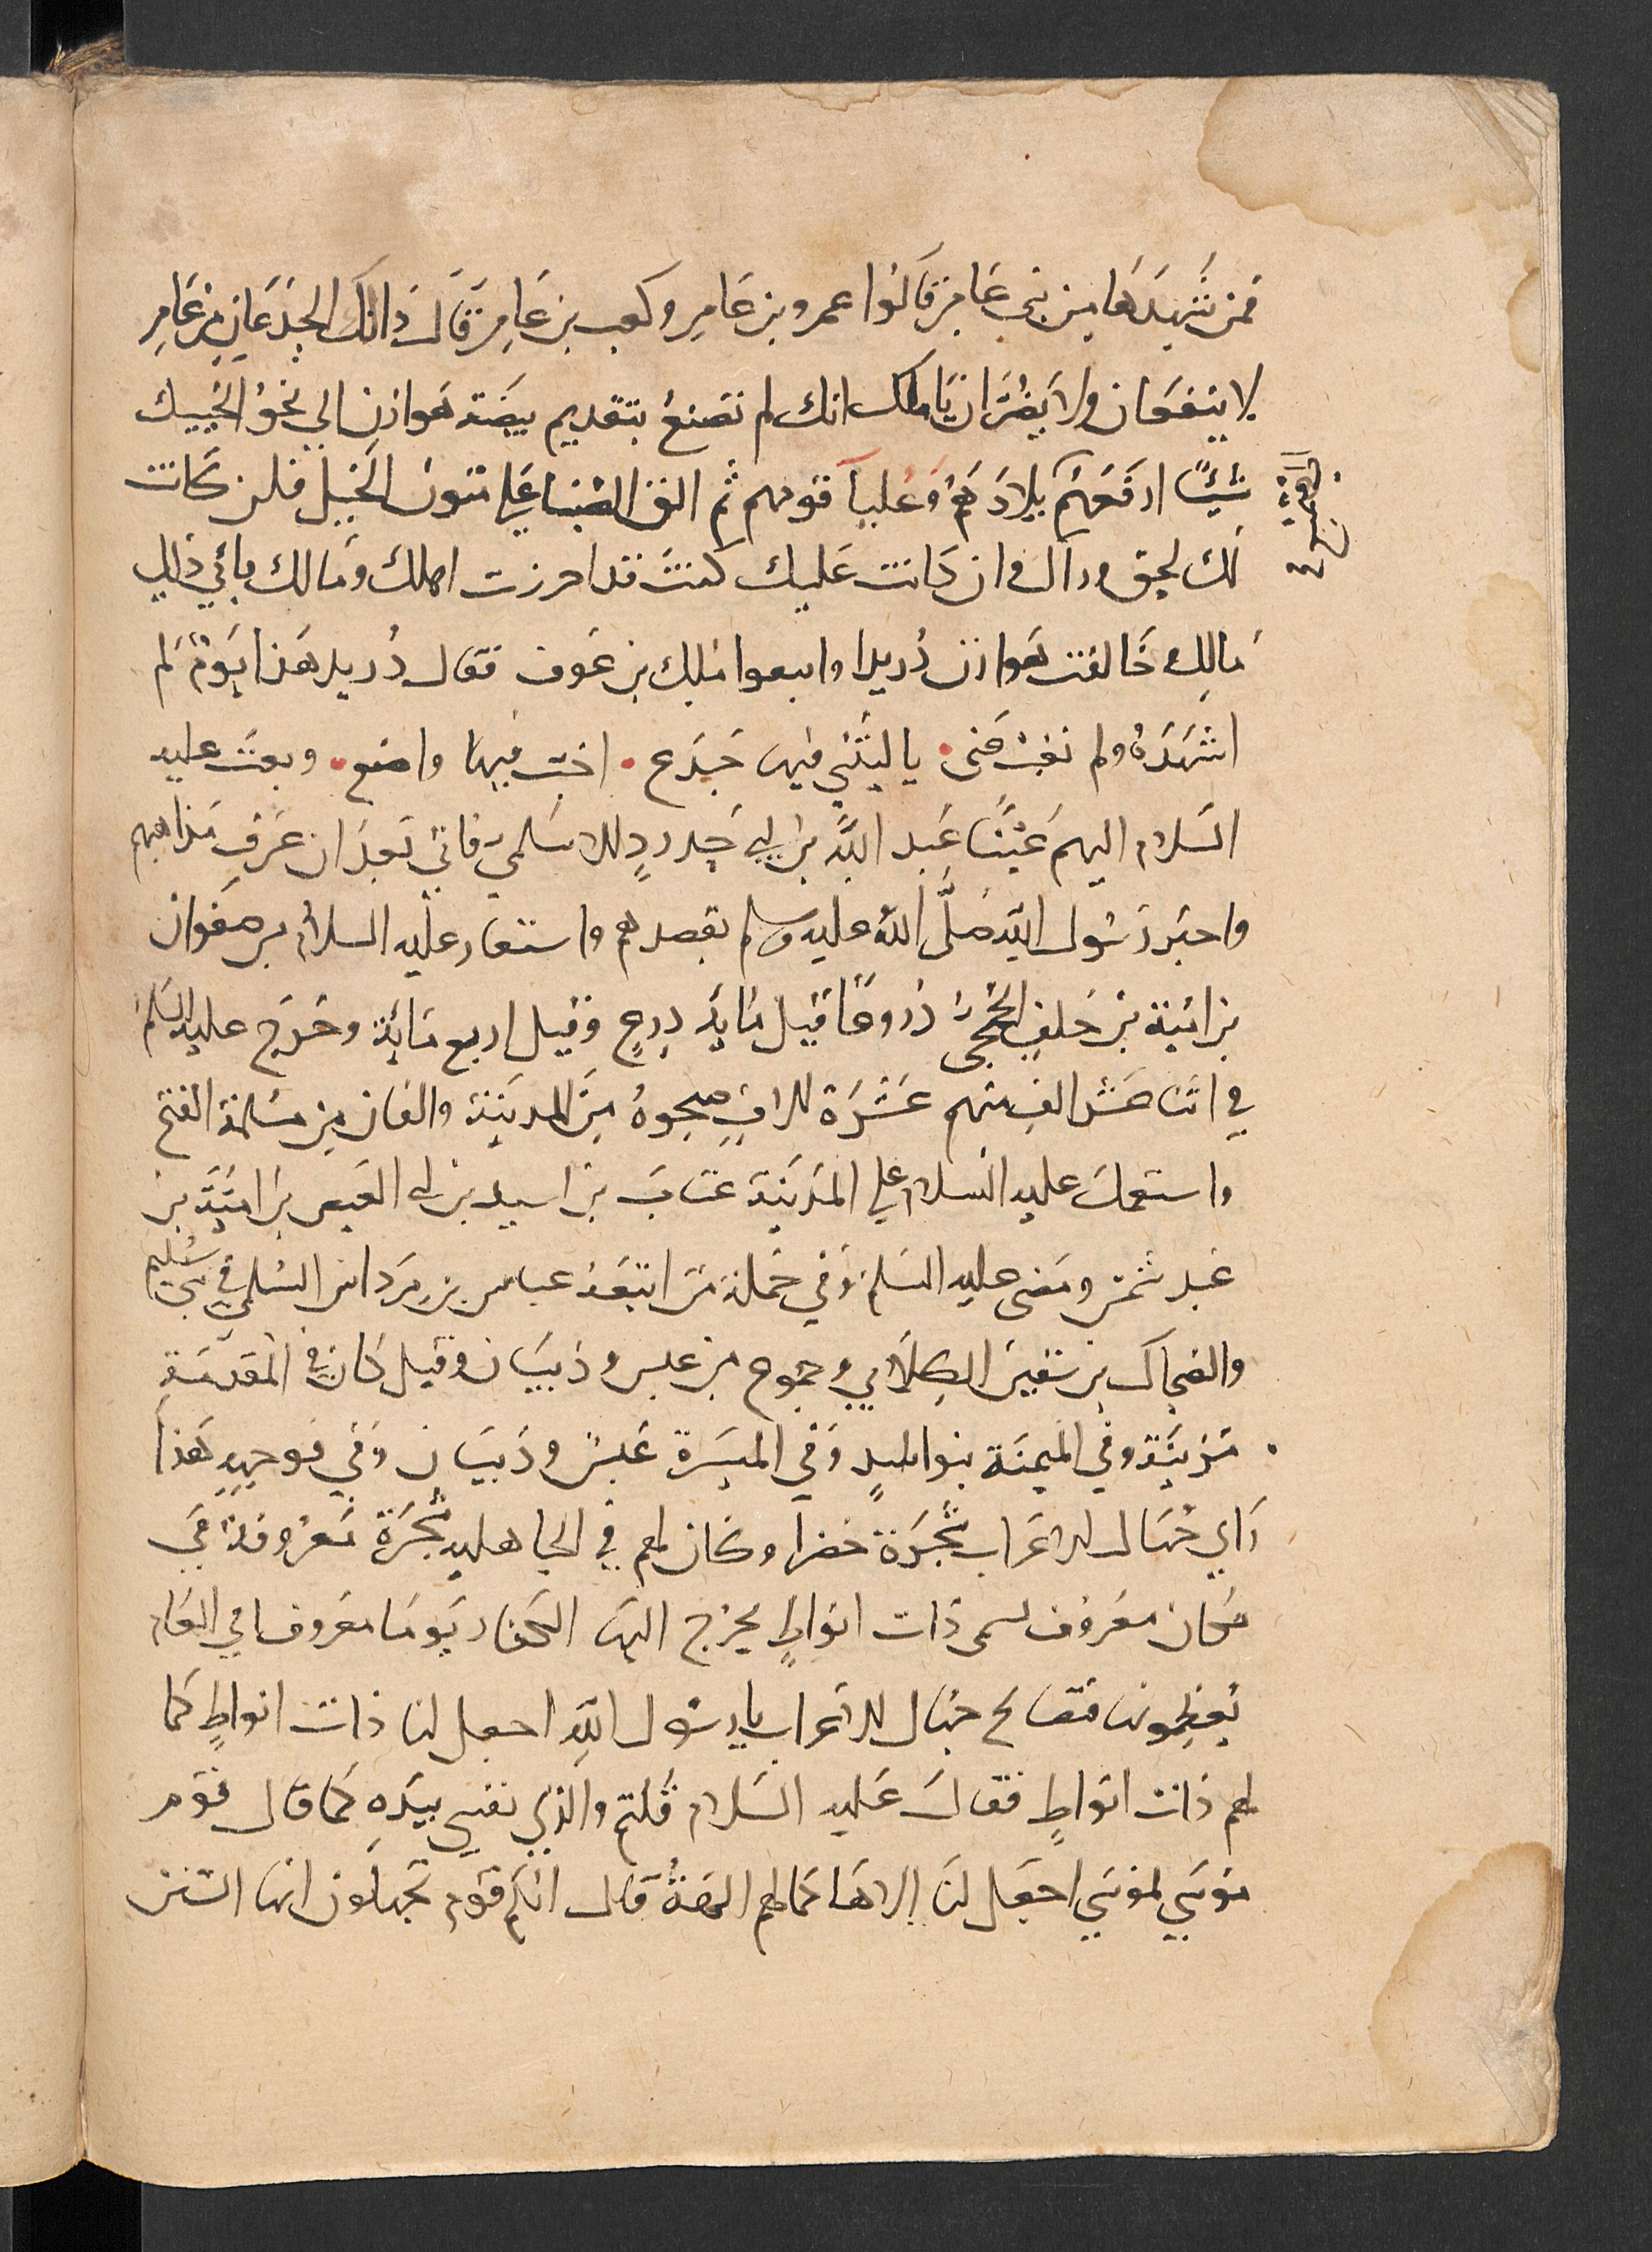 فمن شهدها من بني عامر قالوا عمرو بن عامر وكعب بن عامر قال ذانك الجذعان من عامر
لا ينفعان ولا يضران يا مالك انك لم تصنع بتقديم بيضة هوازن الي نحو الخيل
شيئا ارفعهم بلادهم وعليا قومهم ثم الق الصبا علي متون الخيل فان كانت
لك لحق وراك وان كانت عليك كنت قد احرزت اهلك ومالك فابي ذلك
مالك وخالفت هوازن دريدا واتبعوا مالك بن عوف فقال دريد هذا يوم لم
اشهده ولم يغب عني يا ليتني فيها جذع اخب فيها واضع وبعث عليه
السلام اليهم عينا عبد الله بن ابي حدرد الاسلمي فاتي بعد ان عرف مذاهبهم
واخبر رسول الله صلى الله عليه وسلم بقصدهم واستعار عليه السلام من صفوان
بن امية بن خلف الجمحي دروعا قيل ماية درع وقيل اربع ماية وخرج عليه السلام
في اثنا عشر الف منهم عشرة الاف صحبوه من المدينة والفان من مسلمة الفتح
واستعمل عليه السلام علي المدينة عتاب بن اسيد بن ابي العيص بن امية بن
عبد شمس ومضى عليه السلم وفي جملة من اتبعه عباس بن مرداس السلمي في بني سليم
والضحاك بن سفين الكلابي وجموع من عبس وذبيان وقيل كان في المقدمة
مزينة وفي الميمنة بنو اسد وفي الميسرة عبس وذبيان وفي توجهه هذا
راي جهال الاعراب شجرة خضرا وكان لهم في الجاهليه شجرة معروفة في
مكان معروف تسمى ذات انواط يخرج اليها الكفار يوما معروفا في العام
يعظمونها فتصايح جهال الاعراب يا رسول الله اجعل لنا ذات انواط كما
لهم ذات انواط فقال عليه السلام قلتم والذي نفسي بيده كما قال قوم
موسي لموسي اجعل لنا الاها كما لهم الهة قال انكم قوم تجهلون انها السنن